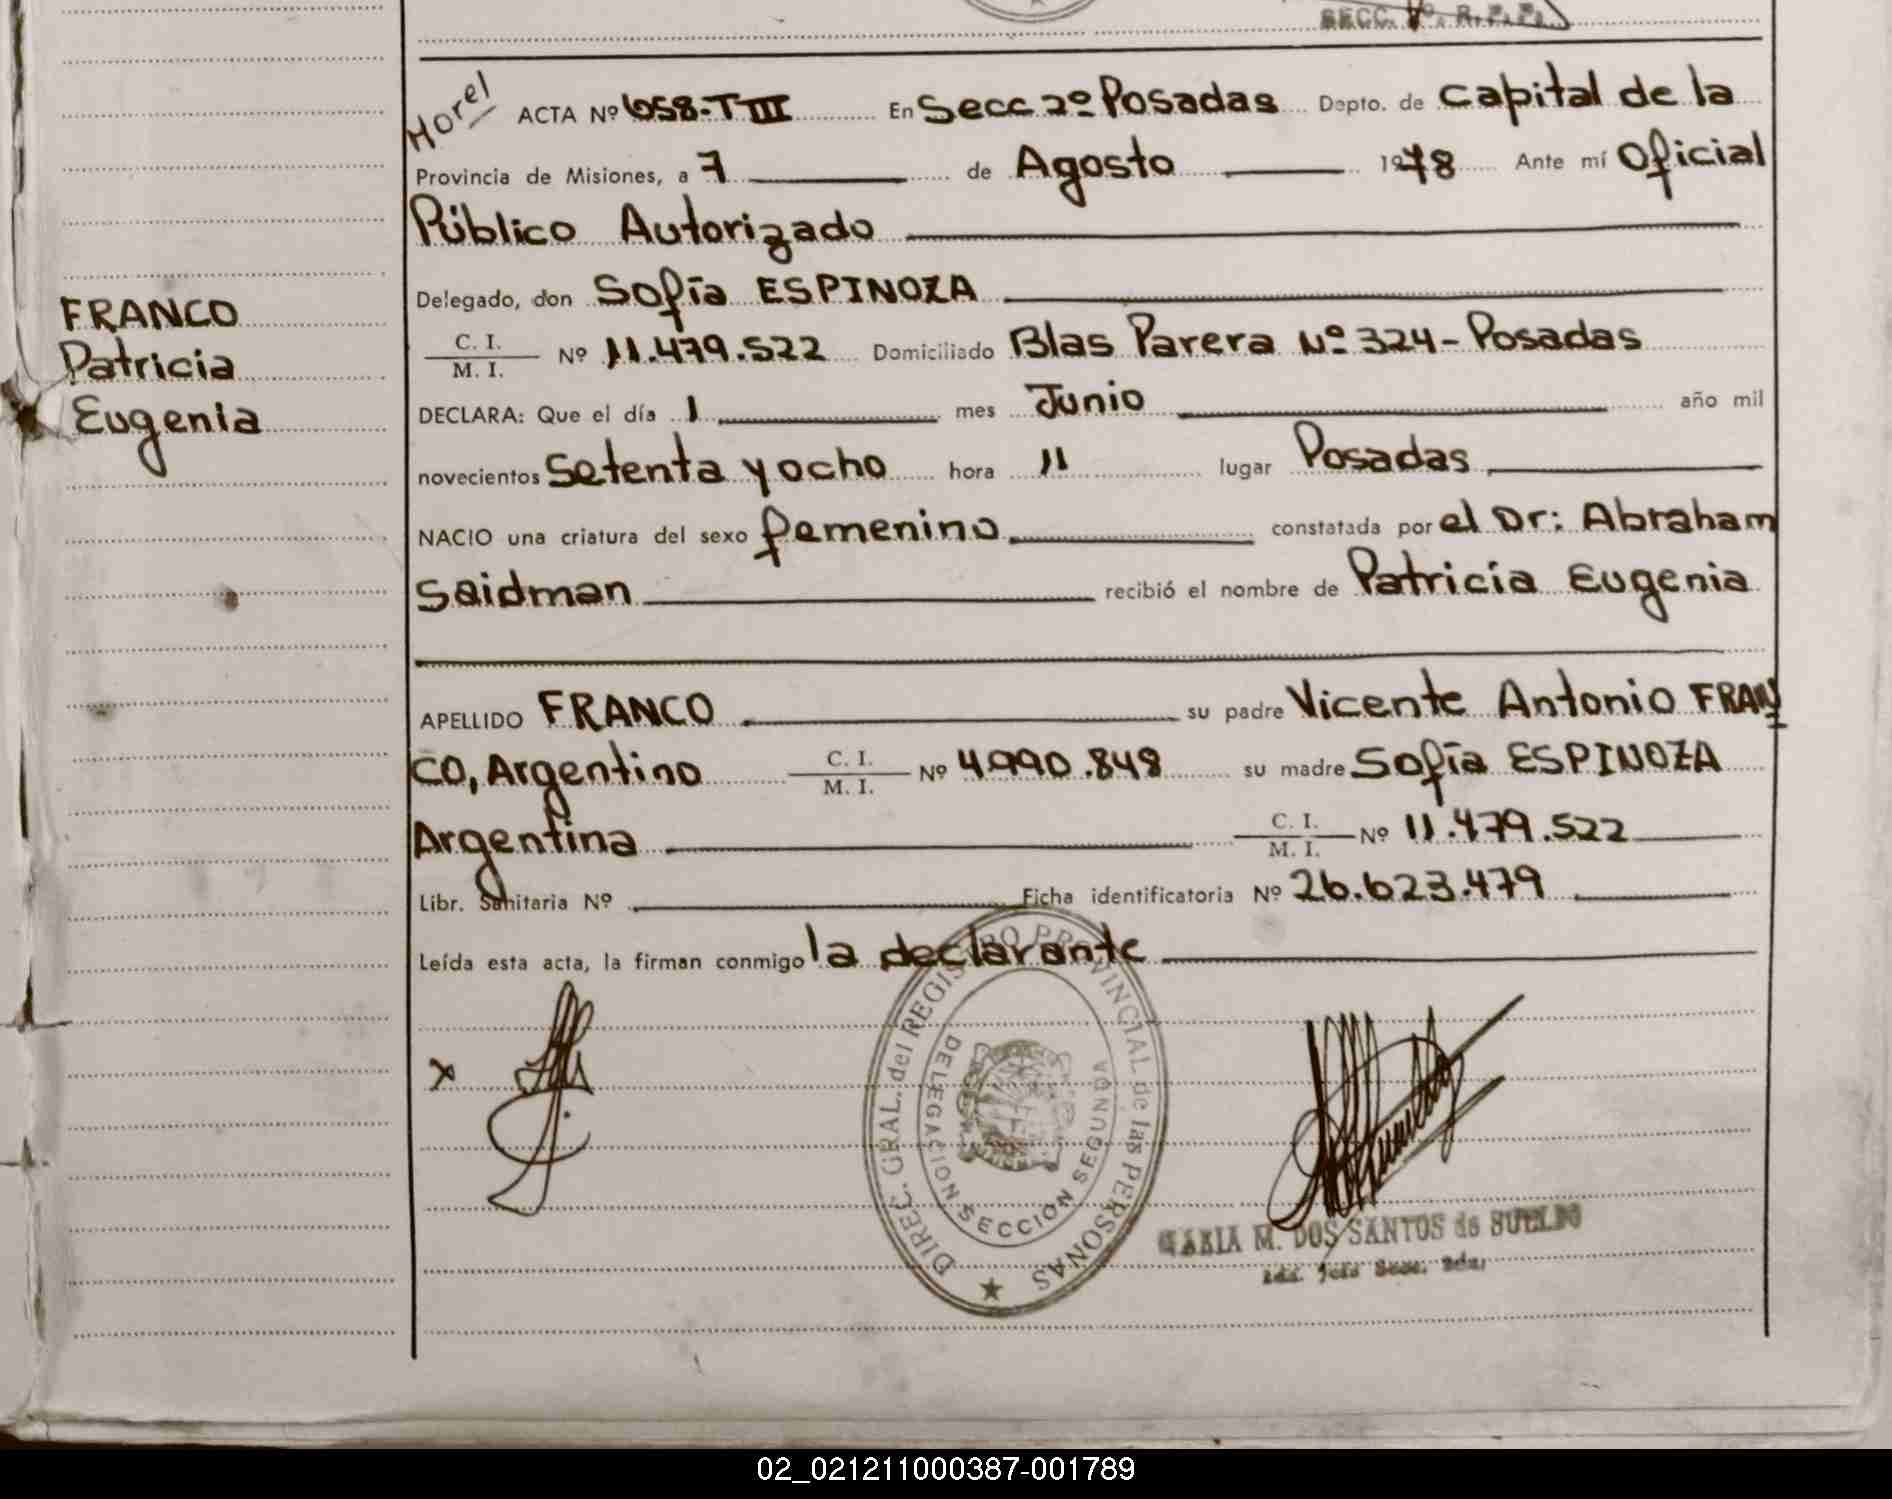 SECC. 2º R. P. P.
Horel
ACTA Nº 658-T III En Secc 2º Posadas Depto. de Capital de la
Provincia de Misiones, a 7 de Agosto 1978 Ante mí Oficial
Público Autorizado
Delegado, don Sofía ESPINOZA
FRANCO
Patricia
Eugenia
C. I.
M. I. Nº 11.479.522 Domiciliado Blas Parera Nº 324 - Posadas
DECLARA: Que el día 1 mes Junio año mil
novecientos Setenta y ocho hora 11 lugar Posadas
NACIO una criatura del sexo femenino constatada por el Dr: Abraham
Saidman recibió el nombre de Patricia Eugenia
APELLIDO FRANCO su padre Vicente Antonio FRAN
CO, Argentino C. I. M. I. Nº 4.990.848 su madre Sofía ESPINOZA
Argentina C. I. M. I. Nº 11.479.522
Libr. Sanitaria Nº Ficha identificatoria Nº 26.623.479
Leída esta acta, la firman conmigo la declarante
x
DIREC. GRAL. del REGISTRO PROVINCIAL de las PERSONAS
DELEGACION SECCION SEGUNDA
MARIA M. DOS SANTOS de SUELDO
02_021211000387-001789